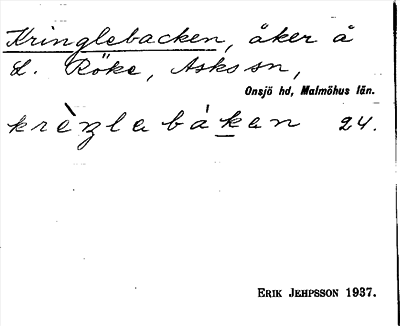 Kringlebacken, åker å
L. Röke, Asks sn,
Onsjö hd, Malmöhus län.
krèŋlabákan 24.
ERIK JEHPSSON 1937.